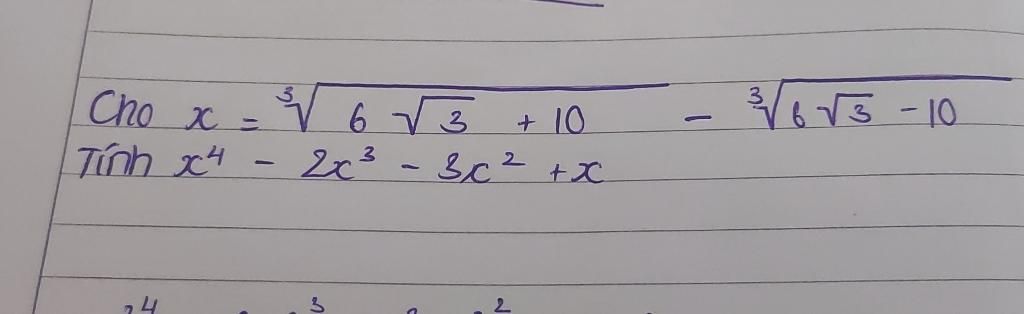 Cho x = ∛(6√3 + 10) - ∛(6√3 - 10)
Tính x⁴ - 2x³ - 3x² + x